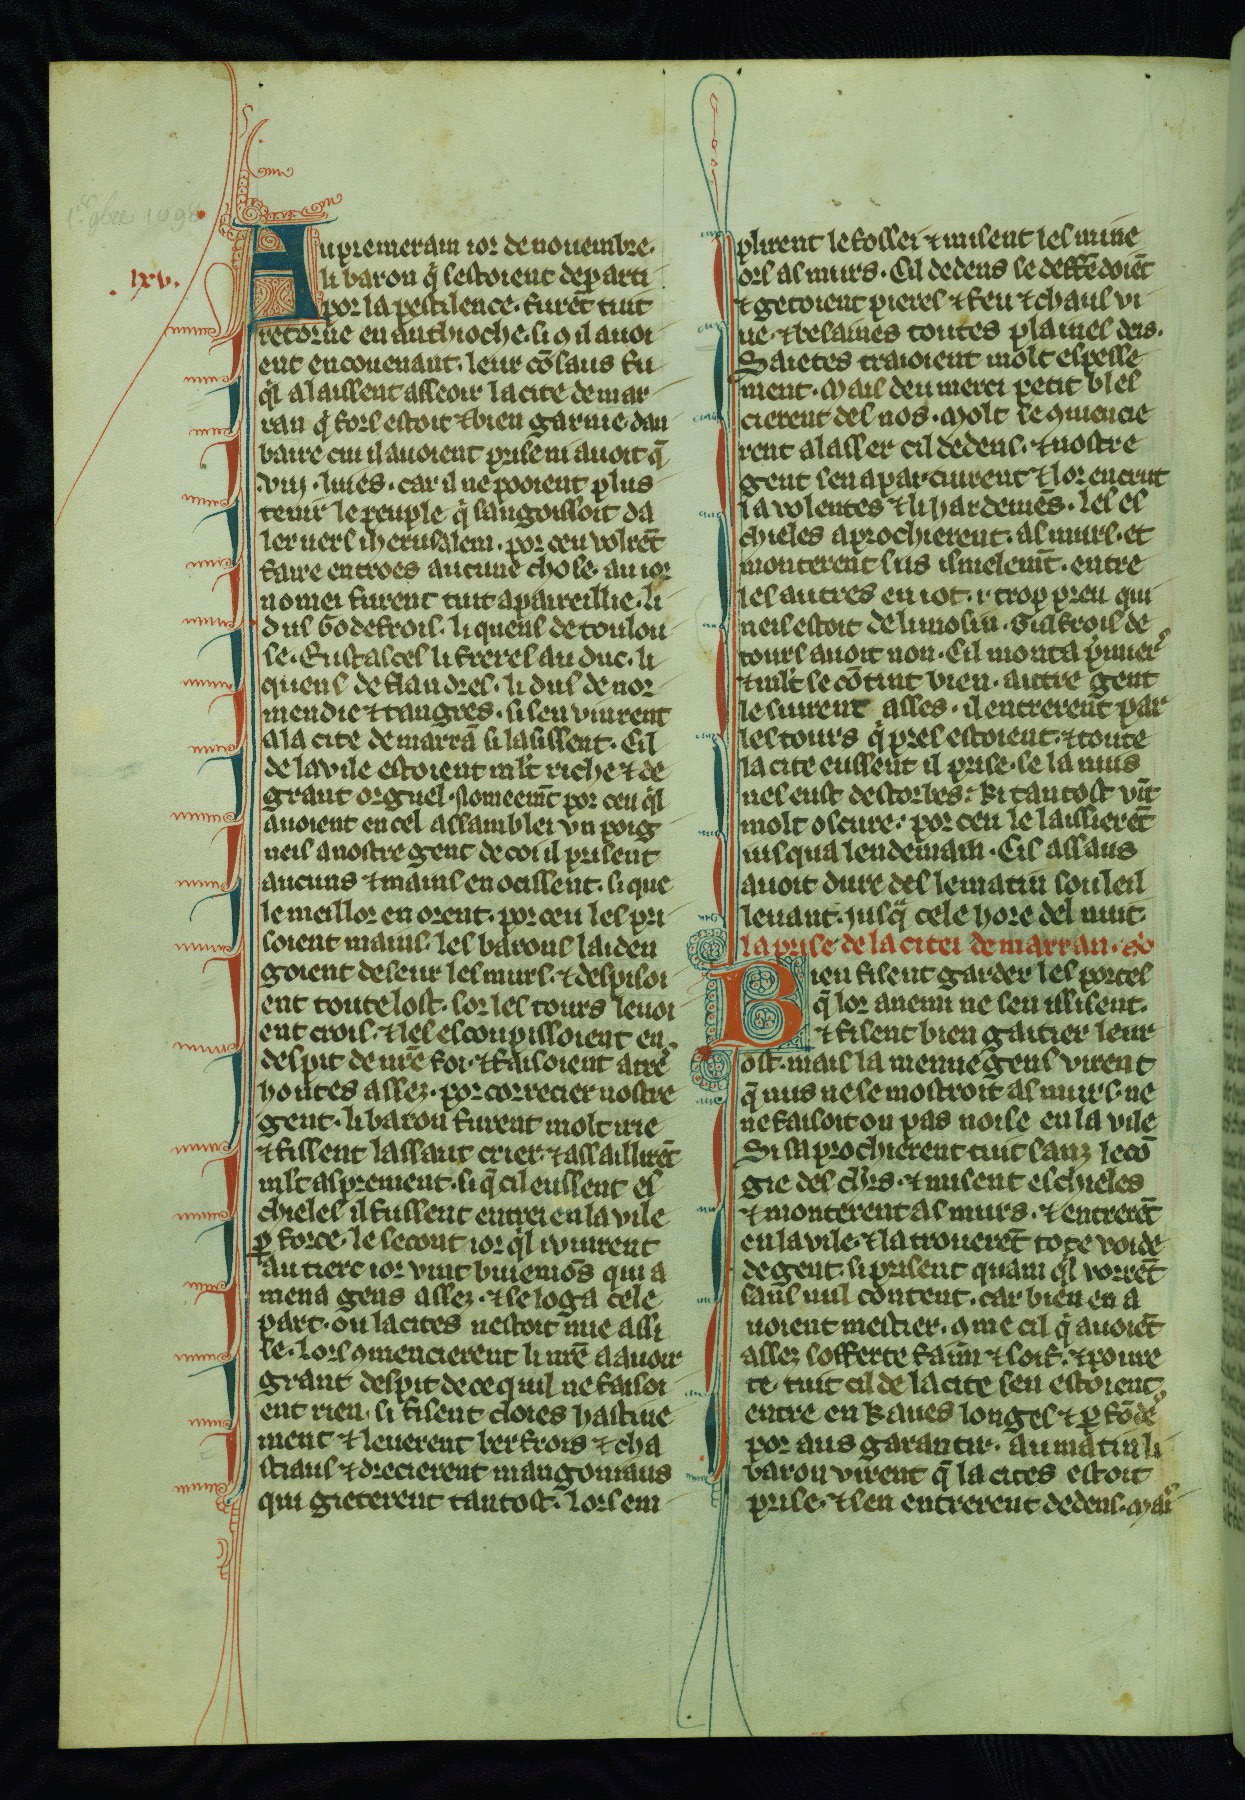 .lxv.
Au premerain ior de nouembre.
li baron q̃ sestoient departi
por la pestilence. furẽt tuit
retorne en anthioche. si 9 il auoi
ent en couenant. leur cõsaus fu
ql alaissent asseoir la cite de mar
ran q̃ fors estoit ⁊ bien garnie. dan
baire cui il auoient prise ni auoit q̃
.viij. liues. car il ne pooient plus
tenir le peuple q̃ sangoissoit da
ler uers iherusalem. por ceu volrẽt
faire entroes aucune chose. au ior
nomei furent tuit apareillie. li
dus Godefrois. li quens de toulou
se. Eustasces li freres au duc. li
quens de flandres. li dus de nor
mendie ⁊ tangres. si sen vinrent
a la cite de marrã si lasissent. Cil
de la vile estoient mlt riche ⁊ de
grant orguel. por ceu ql
auoient en cel assamblei vn poig
neis a nostre gent de coi il prisent
aucuns ⁊ mains en ocissent. si que
le meillor en orent. por ceu les pri
soient mains. les barons laiden
goient deseur les murs. ⁊ despisoi
ent toute lost. sor les tours leuoi
ent crois. ⁊ les escoupissoient en
despit de nr̃e foi. ⁊ faisoient atre
hontes assez. por correcier nostre
gent. li baron furent molt irie
⁊ fissent lassaut crier. ⁊ assaillirẽt
mlt asprement. si q̃ cil eussent es
chieles il fussent entrei en la vile
ꝑ force. le secont ior ql i vinrent
au tierc ior vint buiemõs qui a
mena gens assez. ⁊ se loga cele
part. ou la cites nestoit mie assi
se. lors 9mencierent li nr̃e a auoir
grant despit de ce quil ne faisoi
ent rien. si fisent cloies hastiue
ment ⁊ leuerent berfrois ⁊ cha
stiaus ⁊ drecierent mangoniaus
qui gieterent tantost. lors em
plirent le fossei ⁊ misent les mine
ors as murs. Cil dedens se deffẽdoiẽt
⁊ getoient pieres ⁊ feu ⁊ chaus vi
ue. ⁊ besaines toutes plaines deis.
Saietes traioient molt espesse
ment. Mais deu merci petit bles
cierent des nos. Molt se 9mencie
rent a lasser cil dedens. ⁊ nostre
gent sen aparciurent ⁊ lor encrut
la volentes ⁊ li hardemẽs. les es
chieles aprochierent. as murs. et
monterent sus ilnelemt. entre
les autres en iot .i. trop preu qui
neis estoit de limosin. Giefrois de
tours auoit non. Cil monta primers
⁊ mlt se cõtint bien. autre gent
le siuirent asses. il entrerent par
les tours q̃ pres estoient. ⁊ toute
la cite eussent il prise. se la nuis
nes eust destorbes. Ki tantost vĩt
molt oscure. por ceu le laissierẽt
iusqua lendemain. Cis assaus
auoit dure des le matin souleil
leuant. Jusq̃ cele hore del nuit.
la prise de la citei de marran.
Bien fisent garder les portes
q̃ lor anemi ne sen ississent.
⁊ fisent bien gaitier leur
ost. mais la menue gens virent
q̃ nus ne se mostroit as murs. ne
ne faisoit on pas noise en la vile
Si saprochierent tuit sanz le cõ
gie des chrs. ⁊ misent eschieles
⁊ monterent as murs. ⁊ entrerẽt
en la vile. ⁊ la trouerẽt tote voide
de gent. si prisent quam ql vorrẽt
sans nul content. car bien en a
uoient mestier. 9me cil q̃ auoiẽt
assez sofferte faim ⁊ soif. ⁊ poure
te. tuit cil de la cite sen estoient
entre en kaues longes ⁊ ꝑfõde
por aus garantir. au matin li
baron virent q̃ la cites estoit
prise. ⁊ sen entrerent dedens. Mais